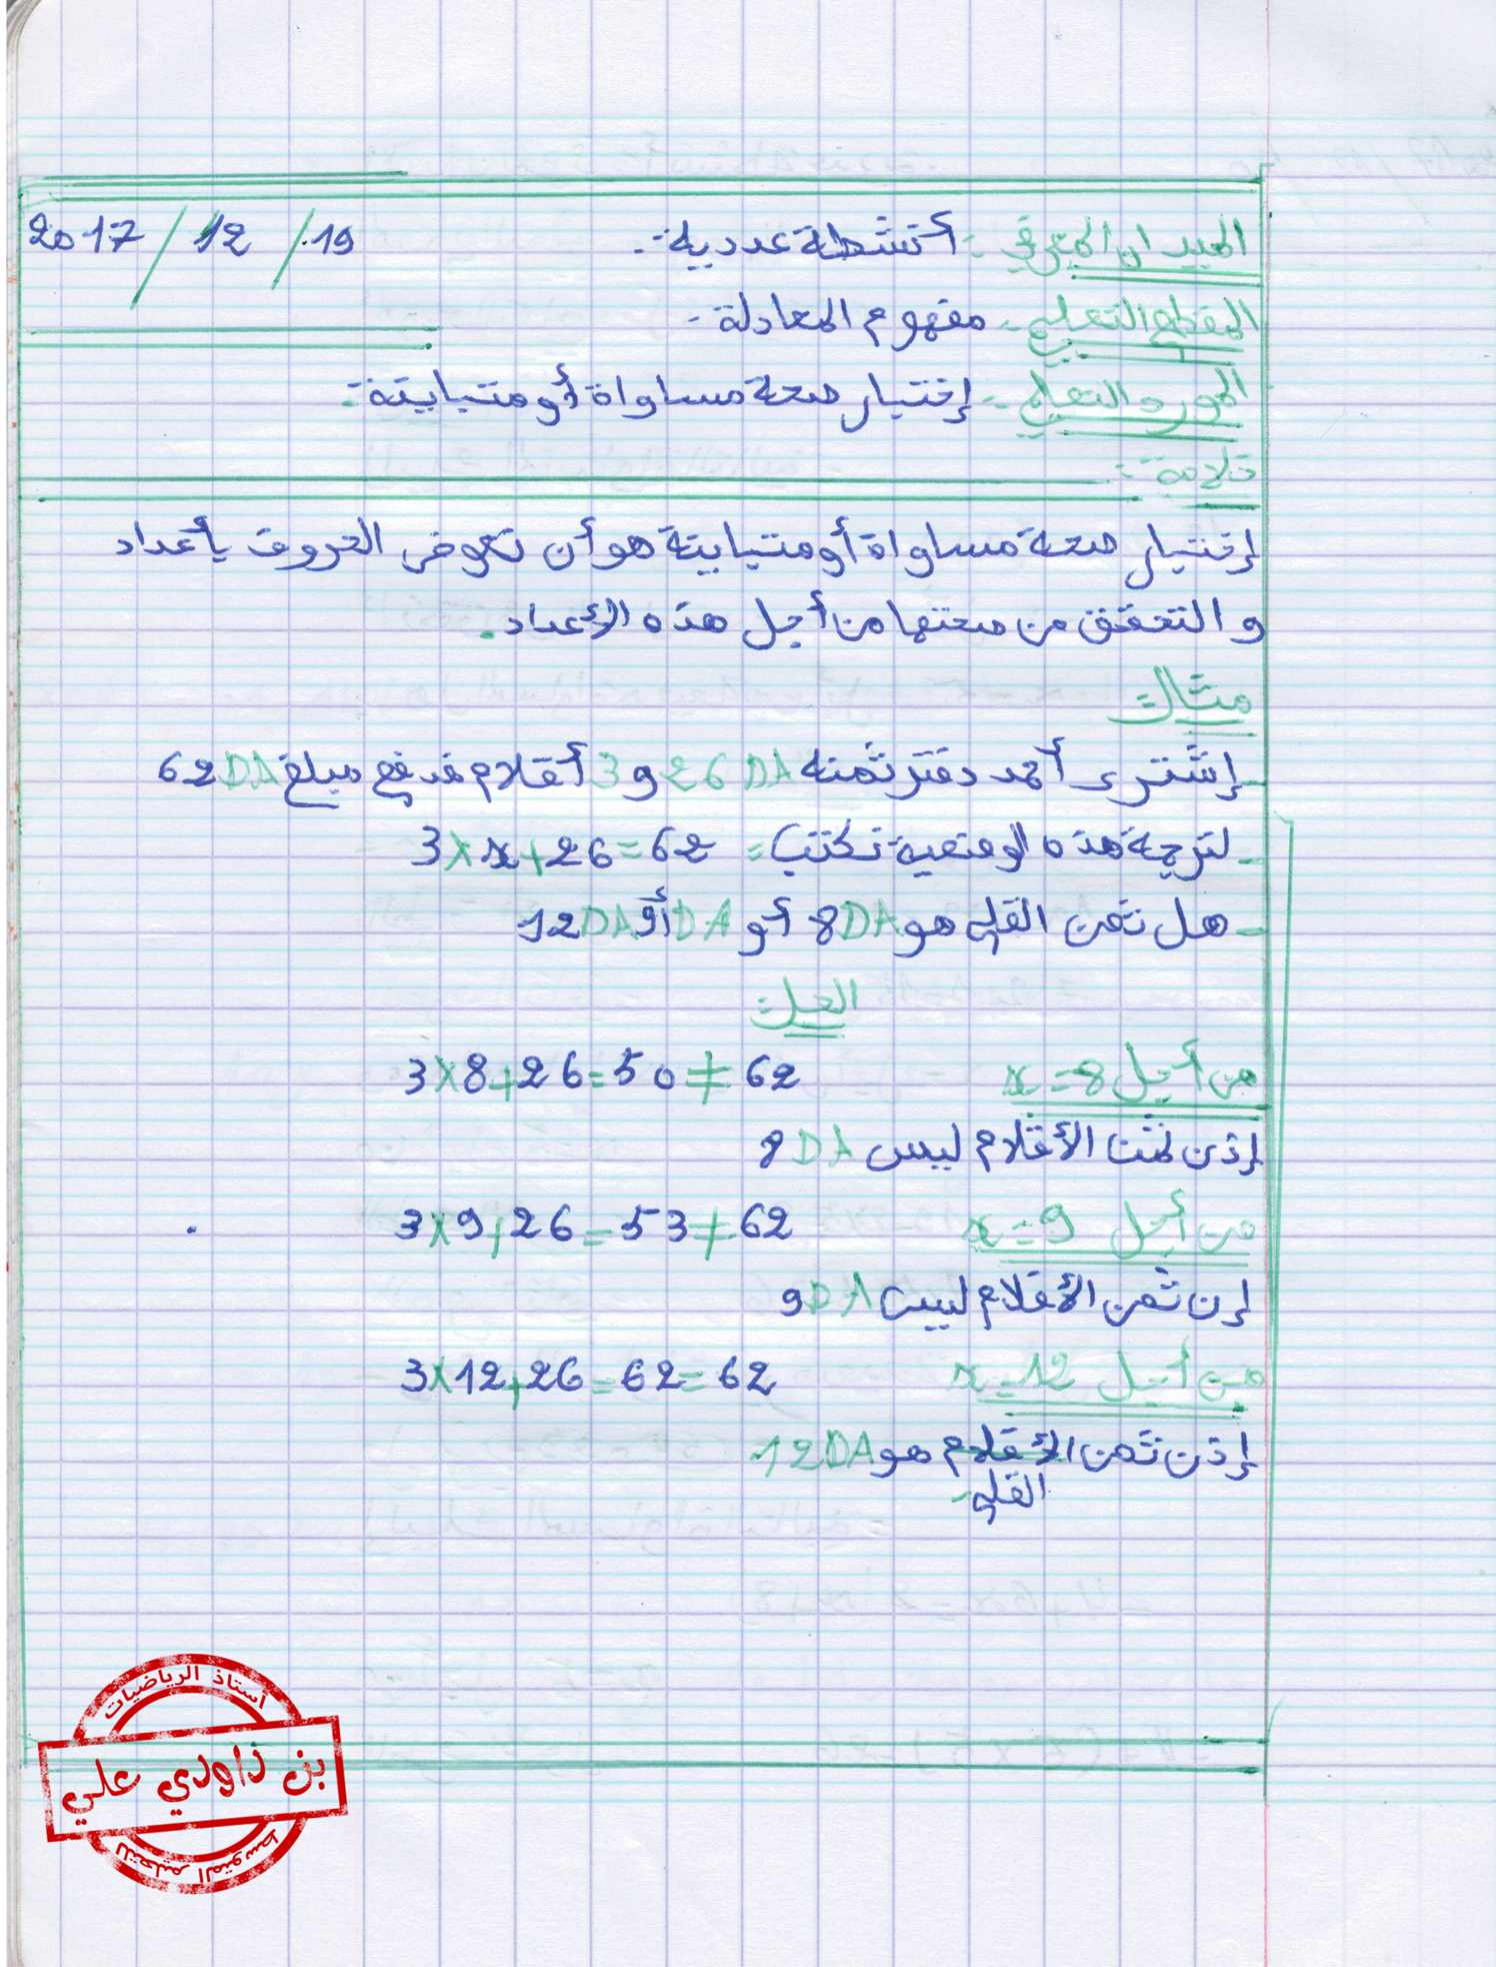 الميدان المعرفي :- أنشطة عددية :- 19 / 12 / 2017
المقطع التعلمي :- مفهوم المعادلة :-
المورد التعلمي :- إختبار صحة مساواة أو متباينة :-
خلاصة :-
إختبار صحة مساواة أو متباينة هو أن نعوض الحروف بأعداد
و التحقق من صحتها من أجل هذه الأعداد.
مثال:
- إشترى أحمد دفتر ثمنه 26 DA و 3 أقلام فدفع مبلغ 62DA
- لترجمة هذه الوضعية نكتب = 3×x+26=62
- هل ثمن القلم هو 8DA أو 9DA أو 12DA
الحل:
من أجل x=8 3×8+26=50≠62
إذن ثمن الأقلام ليس 8DA
من أجل x=9 3×9+26=53≠62
إن ثمن الأقلام ليس 9DA
من أجل x=12 3×12+26=62=62
إذن ثمن الأقلام هو 12DA
القلم
أستاذ الرياضيات
بن داودي علي
للتعليم المتوسط